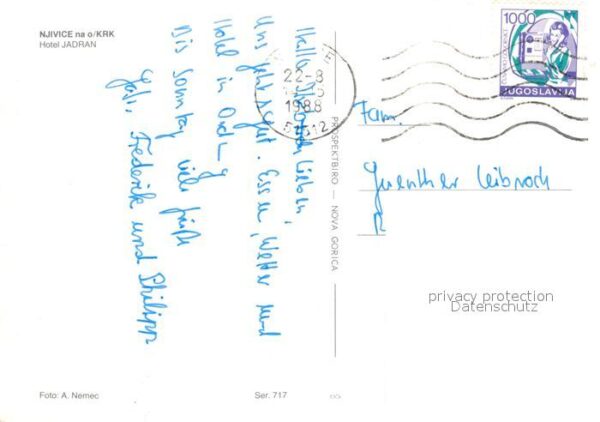 NJIVICE na o/KRK
Hotel JADRAN
Hallo Ihr Lieben,
Uns geht's gut. Essen, Wetter und
Hotel in Ordng
Bis Sonntag viele Grüße
Frederik und Philipp
22-8
1988
PROSPEKTBIRO — NOVA GORICA
1000
JUGOSLAVIJA
Fam.
Guenther Leibrock
privacy protection
Datenschutz
Foto: A. Nemec
Ser. 717